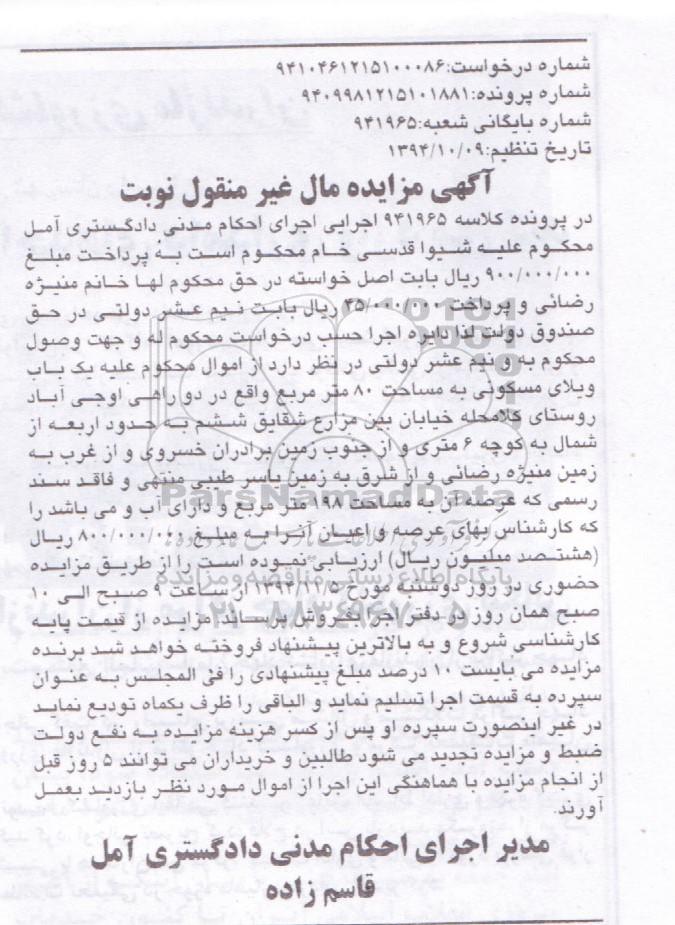 شماره درخواست:۹۴۱۰۴۶۱۲۱۵۱۰۰۰۸۶
شماره پرونده:۹۴۰۹۹۸۱۲۱۵۱۰۱۸۸۱
شماره بایگانی شعبه:۹۴۱۹۶۵
تاریخ تنظیم:۱۳۹۴/۱۰/۰۹
آگهی مزایده مال غیر منقول نوبت
در پرونده کلاسه ۹۴۱۹۶۵ اجرایی اجرای احکام مدنی دادگستری آمل
محکوم علیه شیوا قدسی خام محکوم است به پرداخت مبلغ
۹۰۰/۰۰۰/۰۰۰ ریال بابت اصل خواسته در حق محکوم لها خانم منیژه
رضائی و پرداخت ۴۵/۰۰۰/۰۰۰ ریال بابت نیم عشر دولتی در حق
صندوق دولت لذا دایره اجرا حسب درخواست محکوم له و جهت وصول
محکوم به و نیم عشر دولتی در نظر دارد از اموال محکوم علیه یک باب
ویلای مسکونی به مساحت ۸۰ متر مربع واقع در دو راهی اوجی آباد
روستای کلامحله خیابان بین مزارع شقایق ششم به حدود اربعه از
شمال به کوچه ۶ متری و از جنوب زمین برادران خسروی و از غرب به
زمین منیژه رضائی و از شرق به زمین یاسر طبیبی منتهی و فاقد سند
رسمی که عرصه آن به مساحت ۱۹۸ متر مربع و دارای آب و می باشد را
که کارشناس بهای عرصه و اعیان آنرا به مبلغ ۸۰۰/۰۰۰/۰۰۰ ریال
(هشتصد میلیون ریال) ارزیابی نموده است را از طریق مزایده
حضوری در روز دوشنبه مورخ ۱۳۹۴/۱۱/۵ از ساعت ۹ صبح الی ۱۰
صبح همان روز در دفتر اجرا بفروش برساند مزایده از قیمت پایه
کارشناسی شروع و به بالاترین پیشنهاد فروخته خواهد شد برنده
مزایده می بایست ۱۰ درصد مبلغ پیشنهادی را فی المجلس به عنوان
سپرده به قسمت اجرا تسلیم نماید و الباقی را ظرف یکماه تودیع نماید
در غیر اینصورت سپرده او پس از کسر هزینه مزایده به نفع دولت
ضبط و مزایده تجدید می شود طالبین و خریداران می توانند ۵ روز قبل
از انجام مزایده با هماهنگی این اجرا از اموال مورد نظر بازدید بعمل
آورند.
مدیر اجرای احکام مدنی دادگستری آمل
قاسم زاده
ParsNamadData
پایگاه اطلاع رسانی مناقصه و مزایده
۰۲۱-۸۸۳۴۹۶۷۰-۵